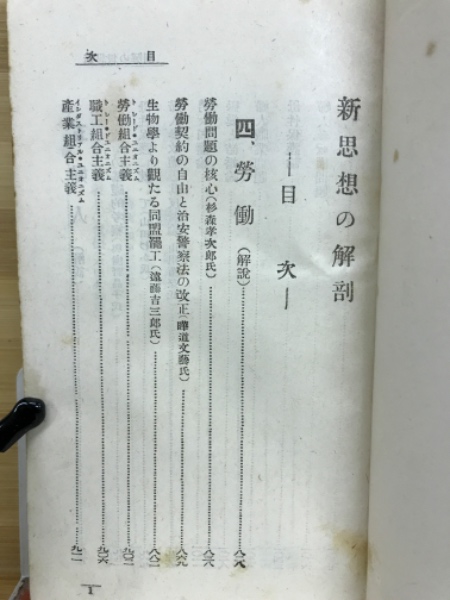 新思想の解剖
―目次―
四、勞働(解說)……八一八
勞働問題の核心(杉森孝次郎氏)……八二六
勞働契約の自由と治安警察法の改正(曄道文藝氏)……八六九
生物學より觀たる同盟罷工(遠藤吉三郎氏)……八八二
勞働組合主義……九〇二
職工組合主義……九〇六
産業組合主義……九一一
目次
1